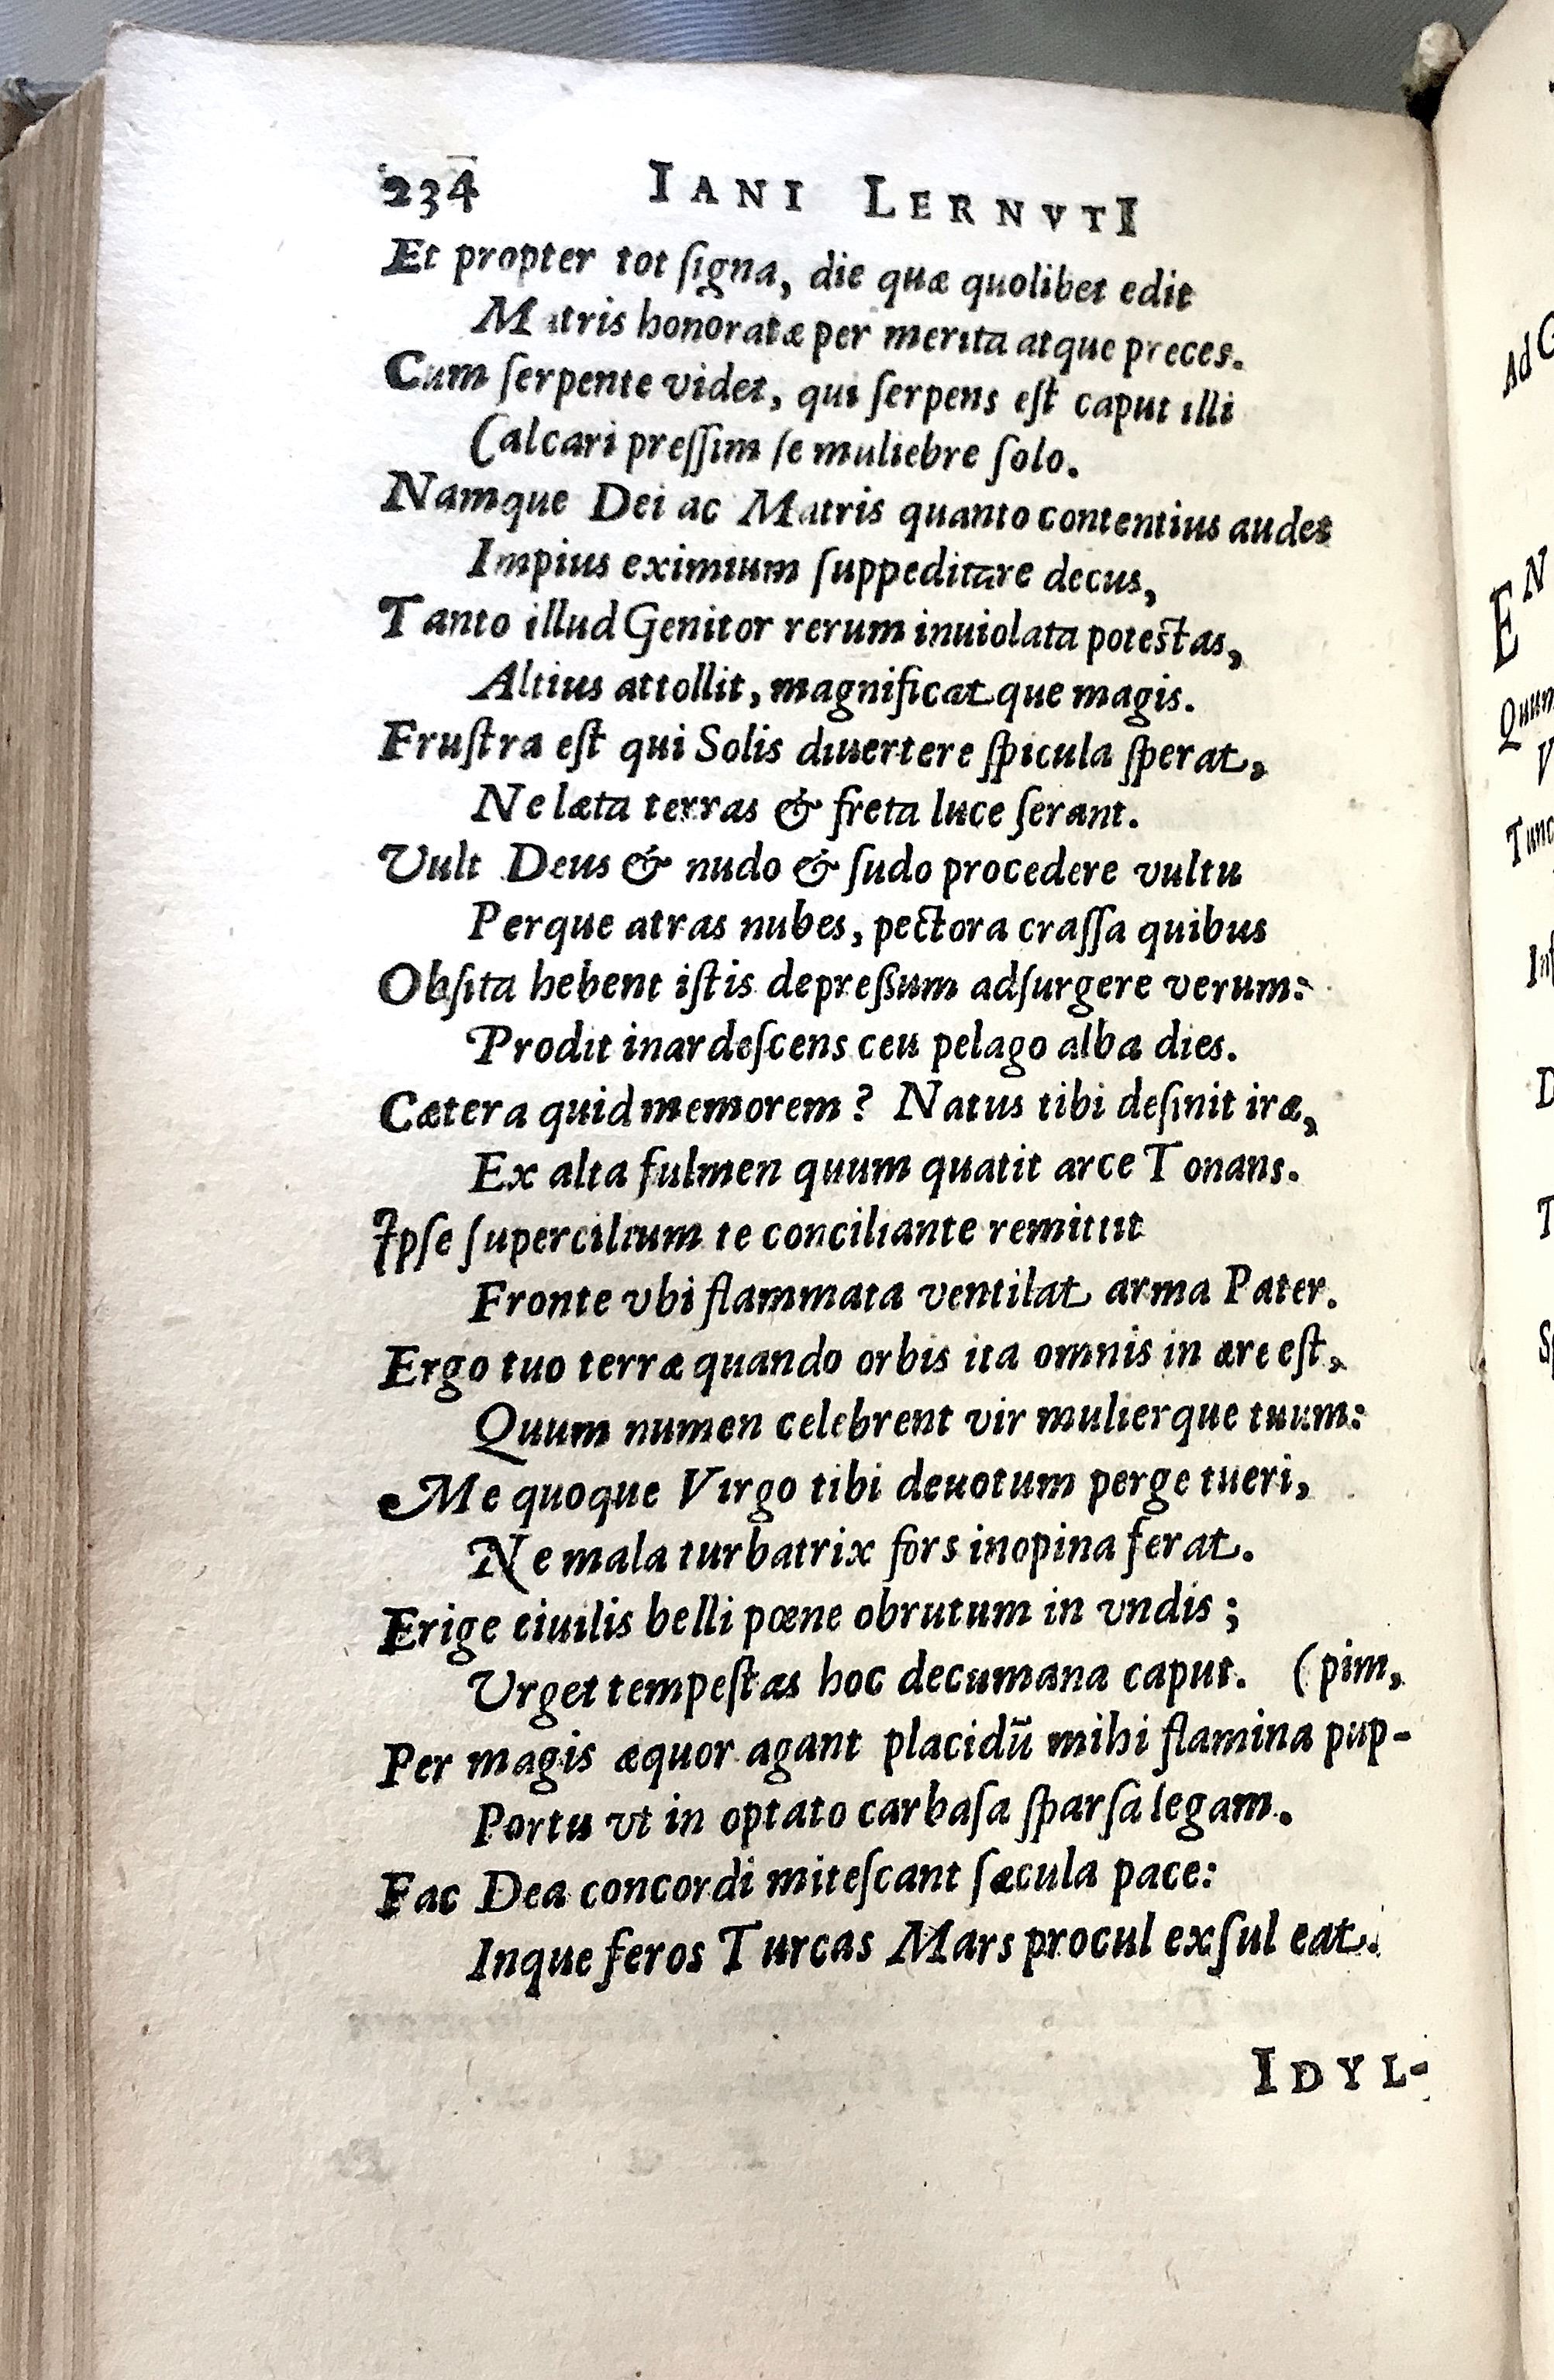 234 IANI LERNVTI
Et propter tot ſigna, die quæ quolibet edit
Matris honoratæ per merita atque preces.
Cum ſerpente videt, qui ſerpens eſt caput illi
Calcari preſſim ſe muliebre ſolo.
Namque Dei ac Matris quanto contentius audet
Impius eximium ſuppeditare decus,
Tanto illud Genitor rerum inuiolata poteſtas,
Altius attollit, magnificat que magis.
Fruſtra eſt qui Solis diuertere ſpicula ſperat,
Ne læta terras & freta luce ſerant.
Vult Deus & nudo & ſudo procedere vultu
Perque atras nubes, pectora craſſa quibus
Obſita hebent iſtis depreßum adſurgere verum:
Prodit inardeſcens ceu pelago alba dies.
Cætera quid memorem? Natus tibi deſinit iræ,
Ex alta fulmen quum quatit arce Tonans.
Ipſe ſupercilium te conciliante remittit
Fronte vbi flammata ventilat arma Pater.
Ergo tuo terræ quando orbis ita omnis in ære eſt,
Quum numen celebrent vir mulierque tuum:
Me quoque Virgo tibi deuotum perge tueri,
Ne mala turbatrix fors inopina ferat.
Erige ciuilis belli pœne obrutum in vndis;
Urget tempeſtas hoc decumana caput. (pim,
Per magis æquor agant placidū mihi flamina pup-
Portu vt in optato carbaſa ſparſa legam.
Fac Dea concordi miteſcant ſæcula pace:
Inque feros Turcas Mars procul exſul eat.
IDYL-
Ad
EN
Quum
V
Tunc
D
T